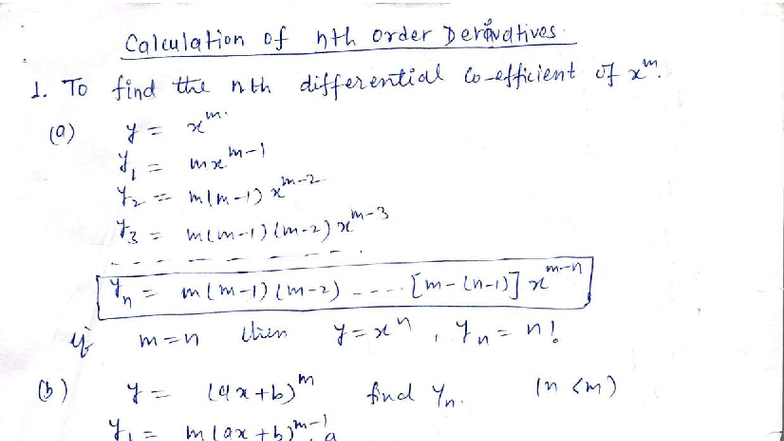 Calculation of nth order Derivatives.
1. To find the nth differential co-efficient of xᵐ.
(a) y = xᵐ.
y₁ = mxᵐ⁻¹
y₂ = m(m-1) xᵐ⁻²
y₃ = m(m-1)(m-2) xᵐ⁻³
- - - - - - - - - - - -
yₙ = m(m-1)(m-2) - - - - [m-(n-1)] xᵐ⁻ⁿ
if m=n then y=xⁿ, yₙ = n!
(b) y = (ax+b)ᵐ find yₙ. (n<m)
y₁ = m(ax+b)ᵐ⁻¹. a